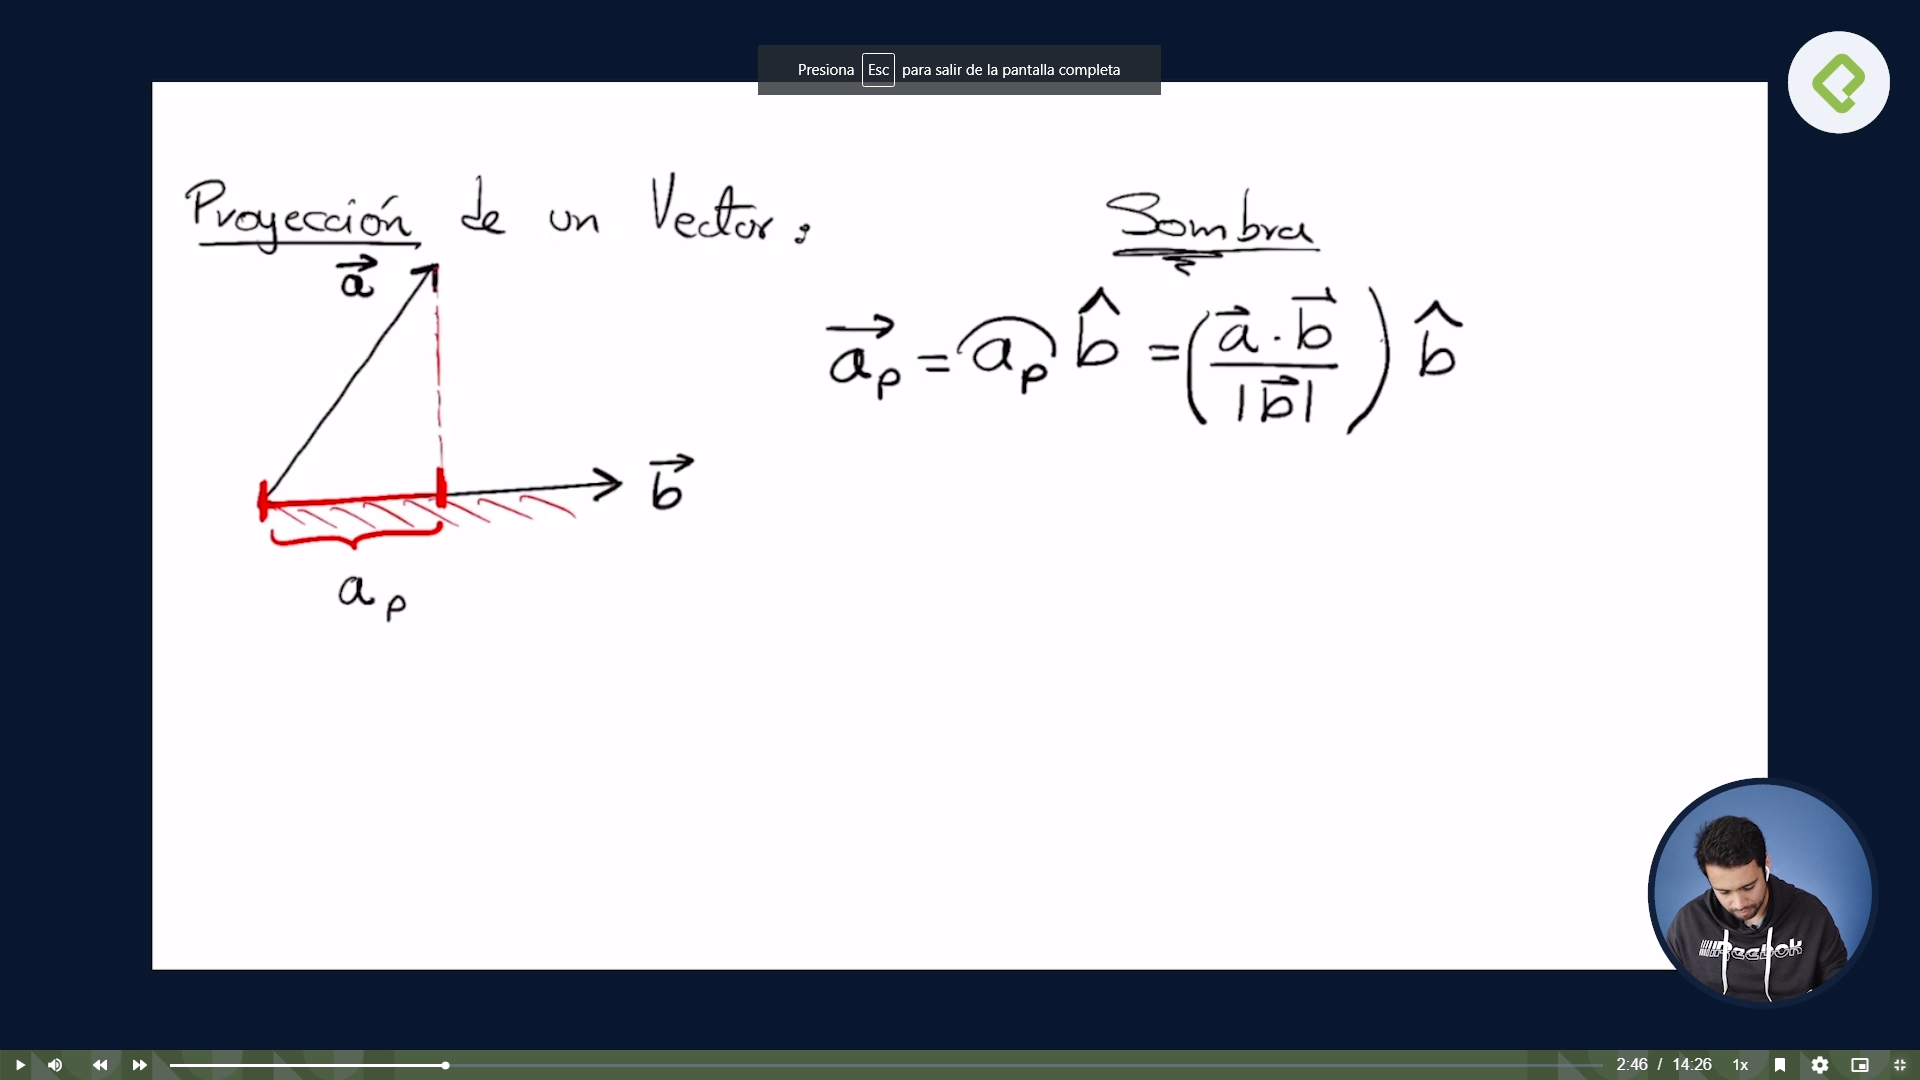 Presiona Esc para salir de la pantalla completa
Proyección de un Vector: Sombra
a⃗
a⃗ₚ = aₚ b̂ = (a⃗ · b⃗ / |b⃗|) b̂
b⃗
aₚ
Reebok
2:46 / 14:26 1x